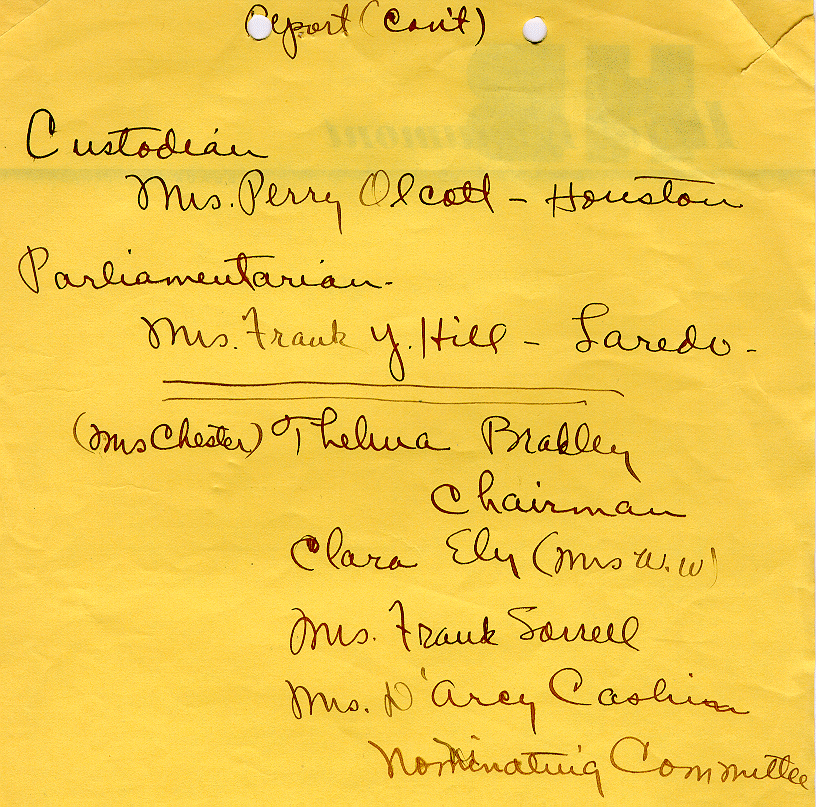 Report (Con't)
Custodian
Mrs. Perry Olcott - Houston
Parliamentarian -
Mrs. Frank Y. Hill - Laredo -
(Mrs Chester) Thelma Bradley
Chairman
Clara Ely (Mrs W. W)
Mrs. Frank Sorrell
Mrs. D'Arcy Cashin
Nominating Committee